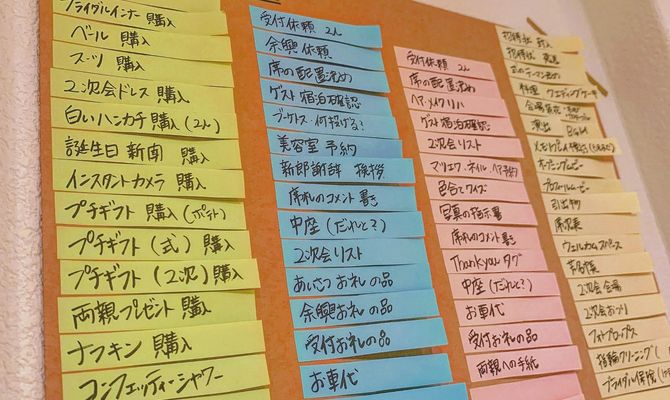 ブライダルインナー 購入
ベール 購入
スーツ 購入
2次会ドレス 購入
白いハンカチ 購入(2人)
誕生日新聞 購入
インスタントカメラ 購入
プチギフト 購入(ポテト)
プチギフト(式) 購入
プチギフト(2次) 購入
両親プレゼント 購入
ナフキン 購入
コンフェッティーシャワー
受付依頼 2人
余興依頼
席の配置決め
ゲスト宿泊確認
ブーケトス・何投げる?
美容室 予約
新郎謝辞 挨拶
席札のコメント書き
中座(だれと?)
2次会リスト
あいさつお礼の品
余興お礼の品
受付お礼の品
お車代
受付依頼 2人
席の配置決め
ヘア・メイクリハ
ゲスト宿泊確認
2次会リスト
マツエク・ネイル・ヘア予約
色合てクイズ
写真の指示書
席札のコメント書き
Thank you タグ
中座(だれと?)
お車代
受付お礼の品
両親への手紙
招待状 封入
招待状 発送
式のテーマ決め
料理 ウェディングケーキ
会場装花
演出 BGM
オープニングムービー
プロフィールムービー
引出物
席次表
ウェルカムスペース
芳名帳
2次会会場
2次会おつり
フォトプロップス
指輪クリーニング(
ブライダル保険(